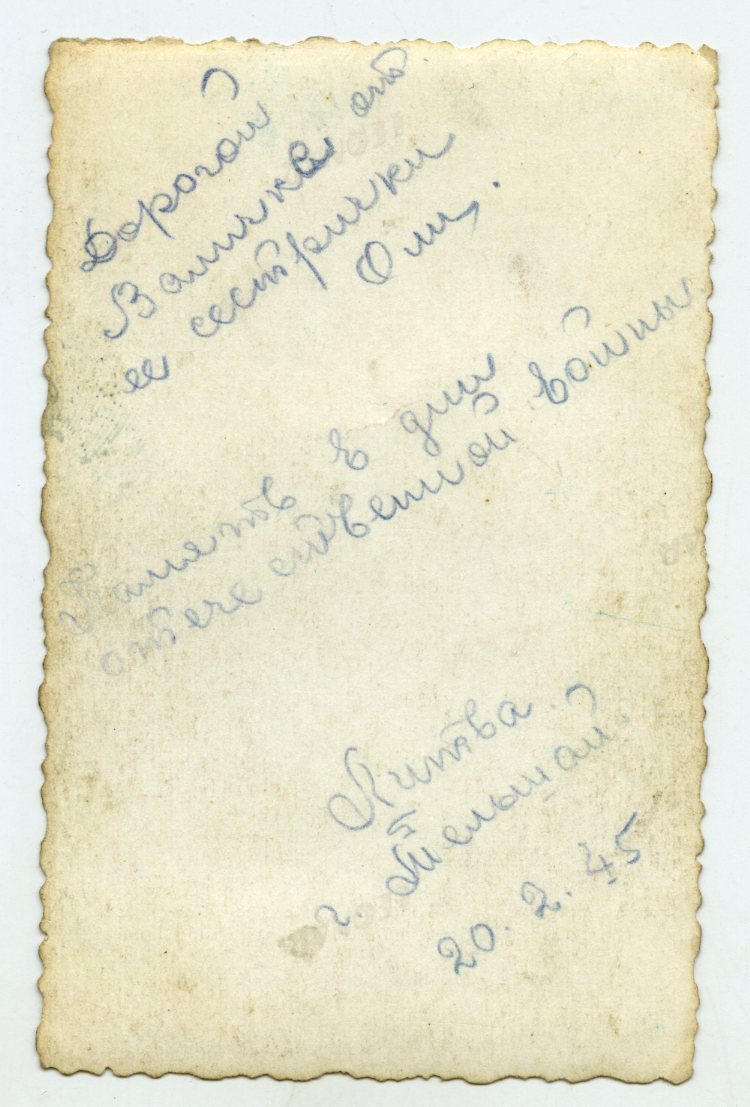 Дорогой
Валичке от
ее сестрички
Оли.
Память в дни
отечественной войны.
Литва.
г. Тельшай.
20.2.45